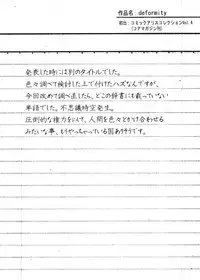 作品名：deformity
初出：コミックアリスコレクションVol.4
(コアマガジン刊)
発表した時には別のタイトルでした。
色々調べて検討した上で付けたハズなんですが、
今回改めて調べ直したら、どこの辞書にも載っていない
単語でした。不思議時空発生。
圧倒的な権力をもって、人間を色々とかけ合わせる
みたいな事、もうやっちゃっている国ありそうです。